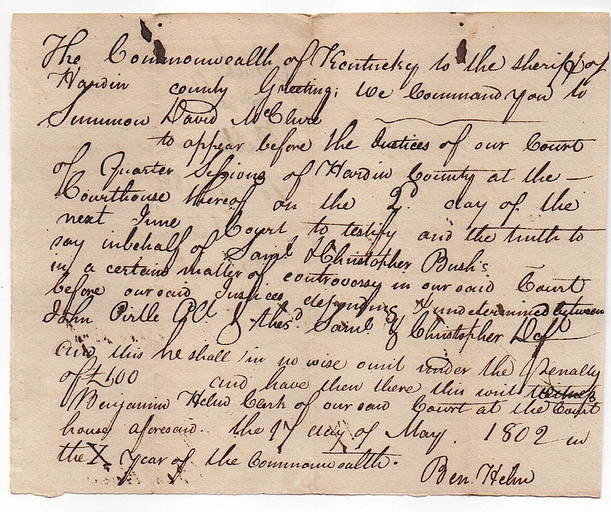 The Commonwealth of Kentucky to the sheriff of
Hardin county Greeting; We Command you to
Summon David McClure
to appear before the Justices of our Court
of Quarter Sessions of Hardin County at the
Courthouse thereof on the 2d day of the
next June Court to testify and the truth to
say inbehalf of Saml & Christopher Bush's
in a certain matter of controvossy in our said Court
before our said Justices depending & undetermined between
John Pirtle Plt. & thesd Saml & Christopher Deft
and this he shall in no wise omit under the Penalty
of £100 and have then there this writ Witness
Benjamin Helm Clerk of our said Court at the Court
house aforesaid. the 17 day of May. 1802 in
the X year of the Commonwealth.
Ben Helm